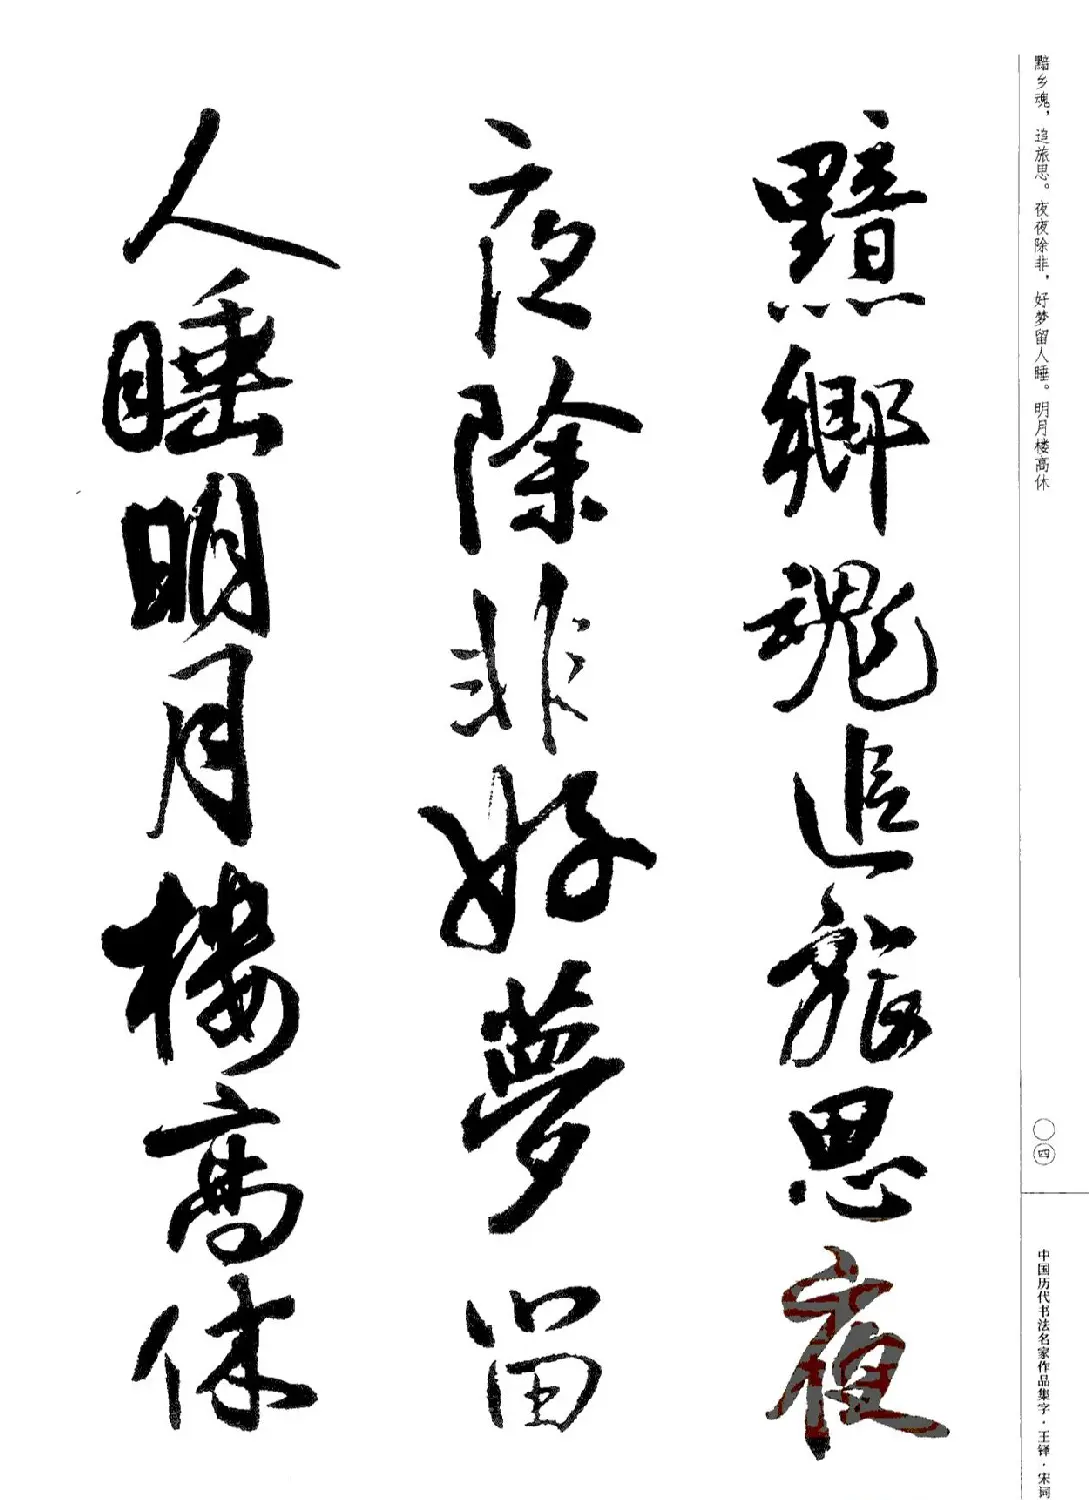 黯乡魂，追旅思。夜夜除非，好梦留人睡。明月楼高休
〇四
中国历代书法名家作品集字·王铎·宋词
黯鄉魂追旅思夜
夜除非好夢留
人睡明月樓高休